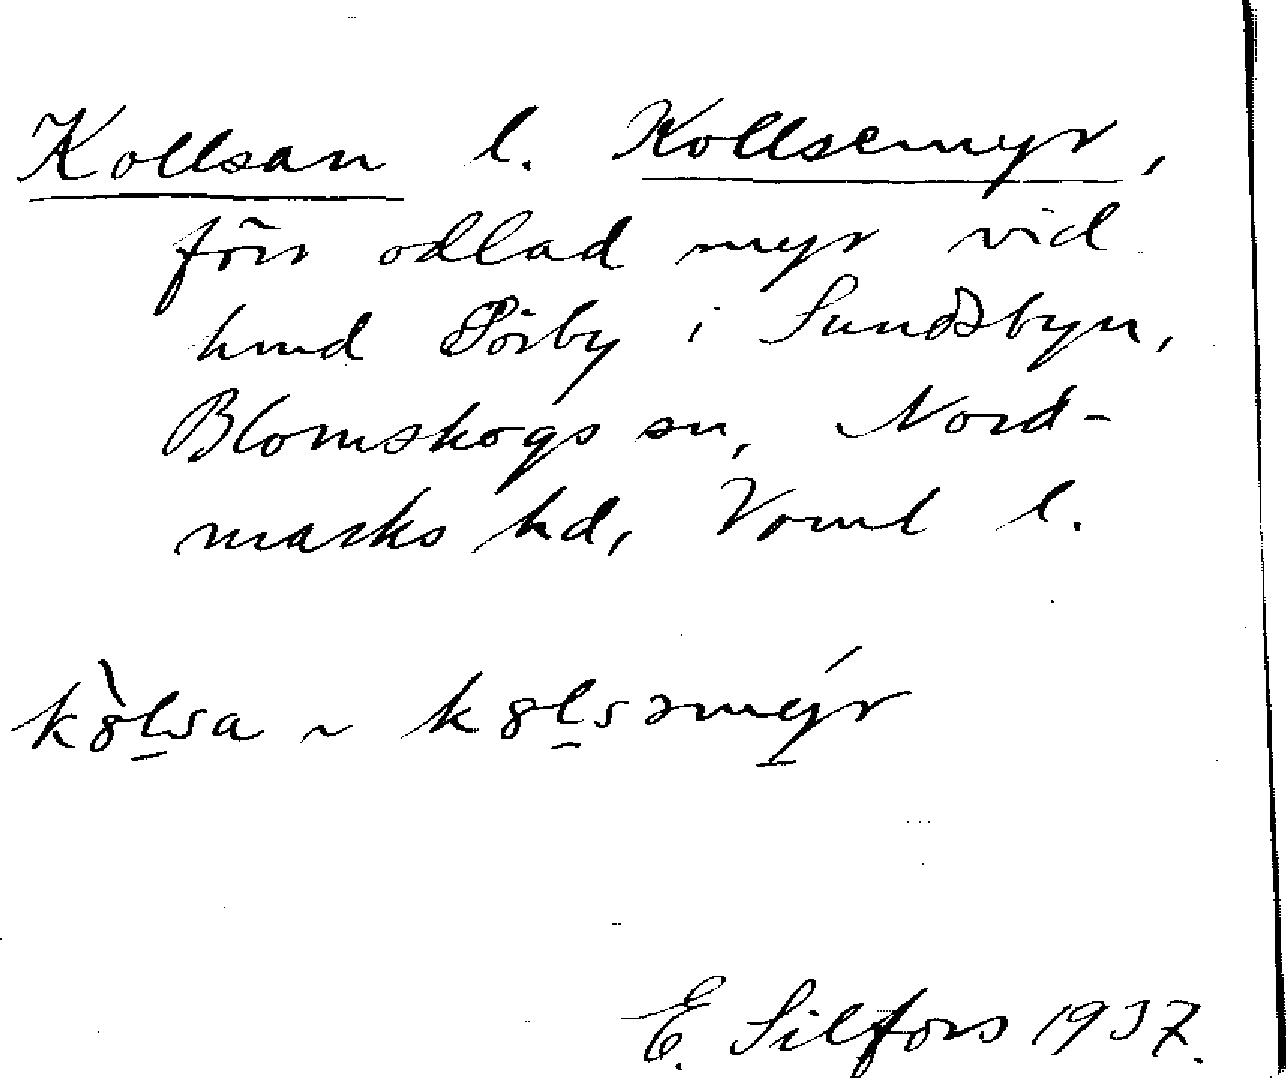 Kollsan l. Kollsemyr,
förr odlad myr vid
hmd Pörby i Sundsbyn,
Blomskogs sn, Nord-
marks hd, Vrml l.
kòl̲sa ~ kol̲səmýr
E. Silfors 1937.